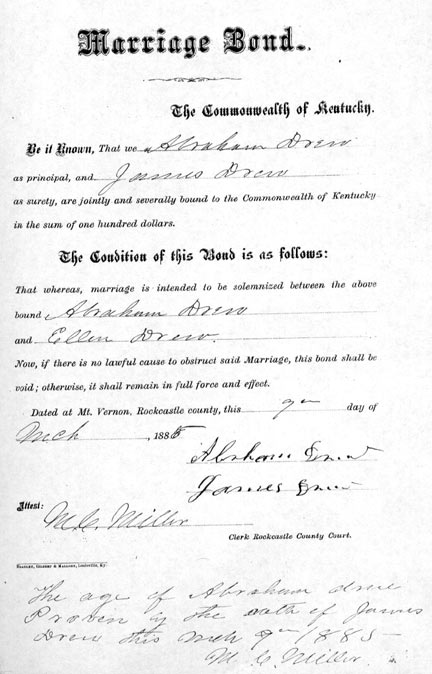 Marriage Bond.
The Commonwealth of Kentucky.
Be it Known, That we Abraham Drew
as principal, and James Drew
as surety, are jointly and severally bound to the Commonwealth of Kentucky
in the sum of one hundred dollars.
The Condition of this Bond is as follows:
That whereas, marriage is intended to be solemnized between the above
bound Abraham Drew
and Ellen Drew.
Now, if there is no lawful cause to obstruct said Marriage, this bond shall be
void; otherwise, it shall remain in full force and effect.
Dated at Mt. Vernon, Rockcastle county, this 9th day of
Mch , 1885
Abrham Drew
James Drew
Attest:
M. C. Miller
Clerk Rockcastle County Court.
Bradley, Gilbert & Mallory, Louisville, Ky.
The age of Abraham drew
Proven by the oath of James
Drew this Mch 9th 1885-
M. C. Miller